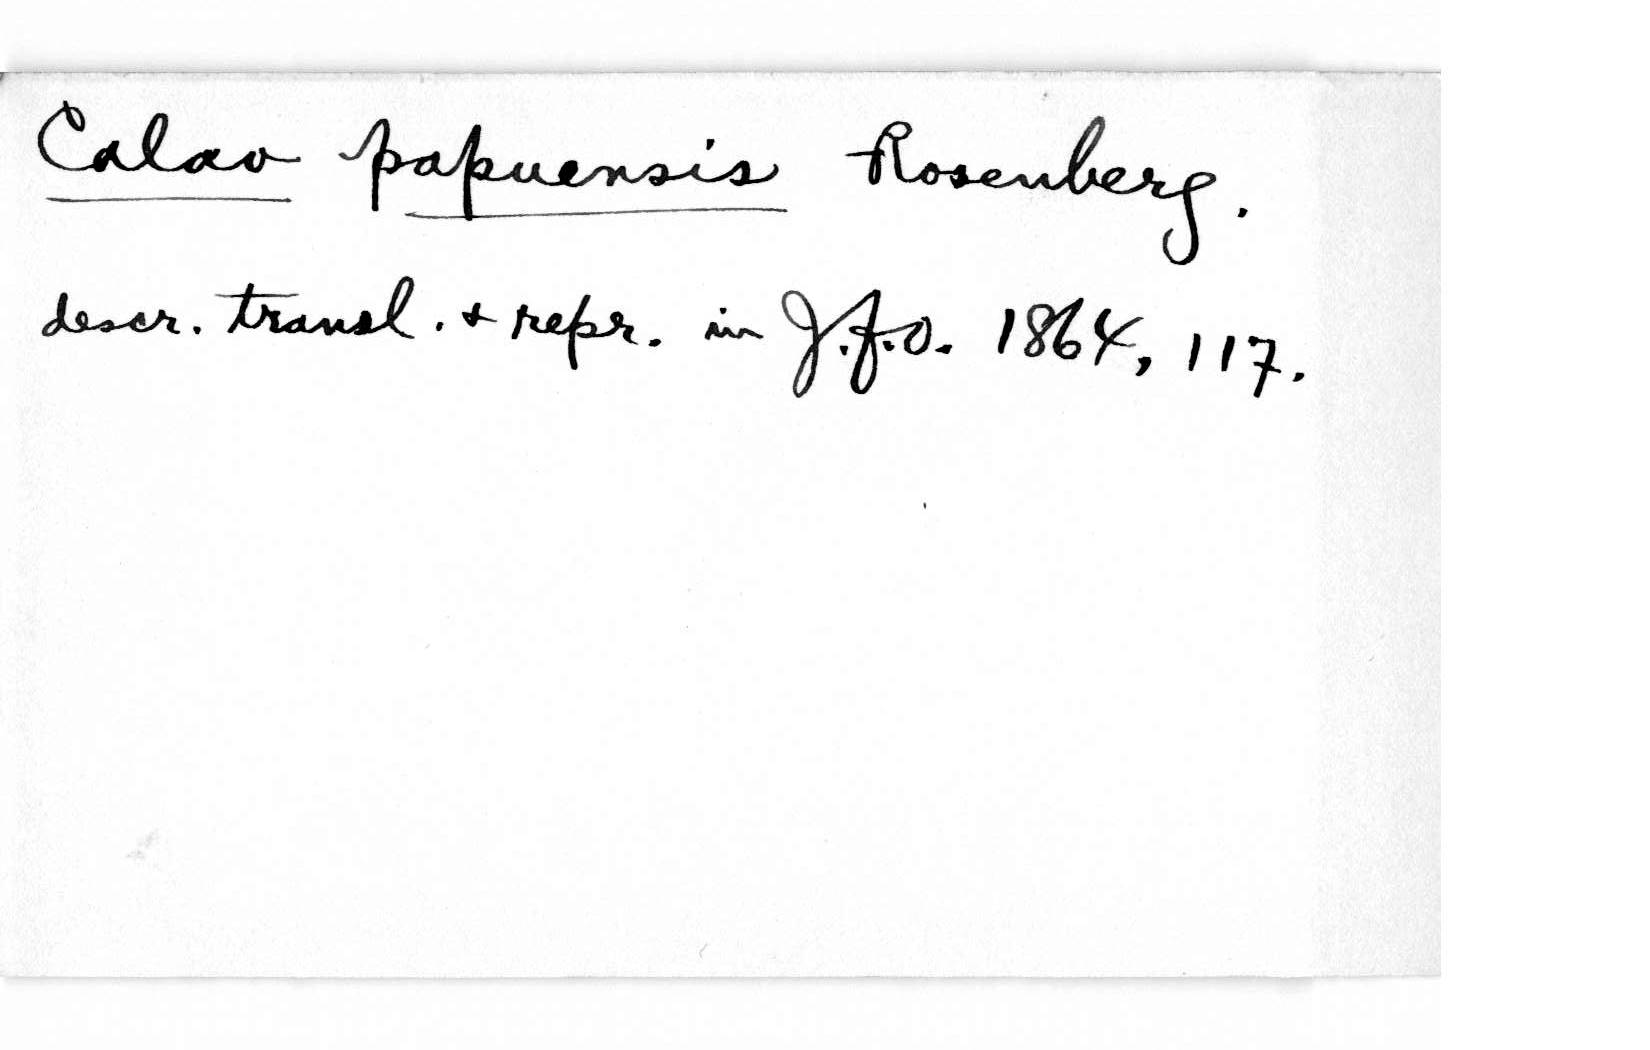 Calao papuensis Rosenberg.
descr. transl. & repr. in J.f.O. 1864, 117.